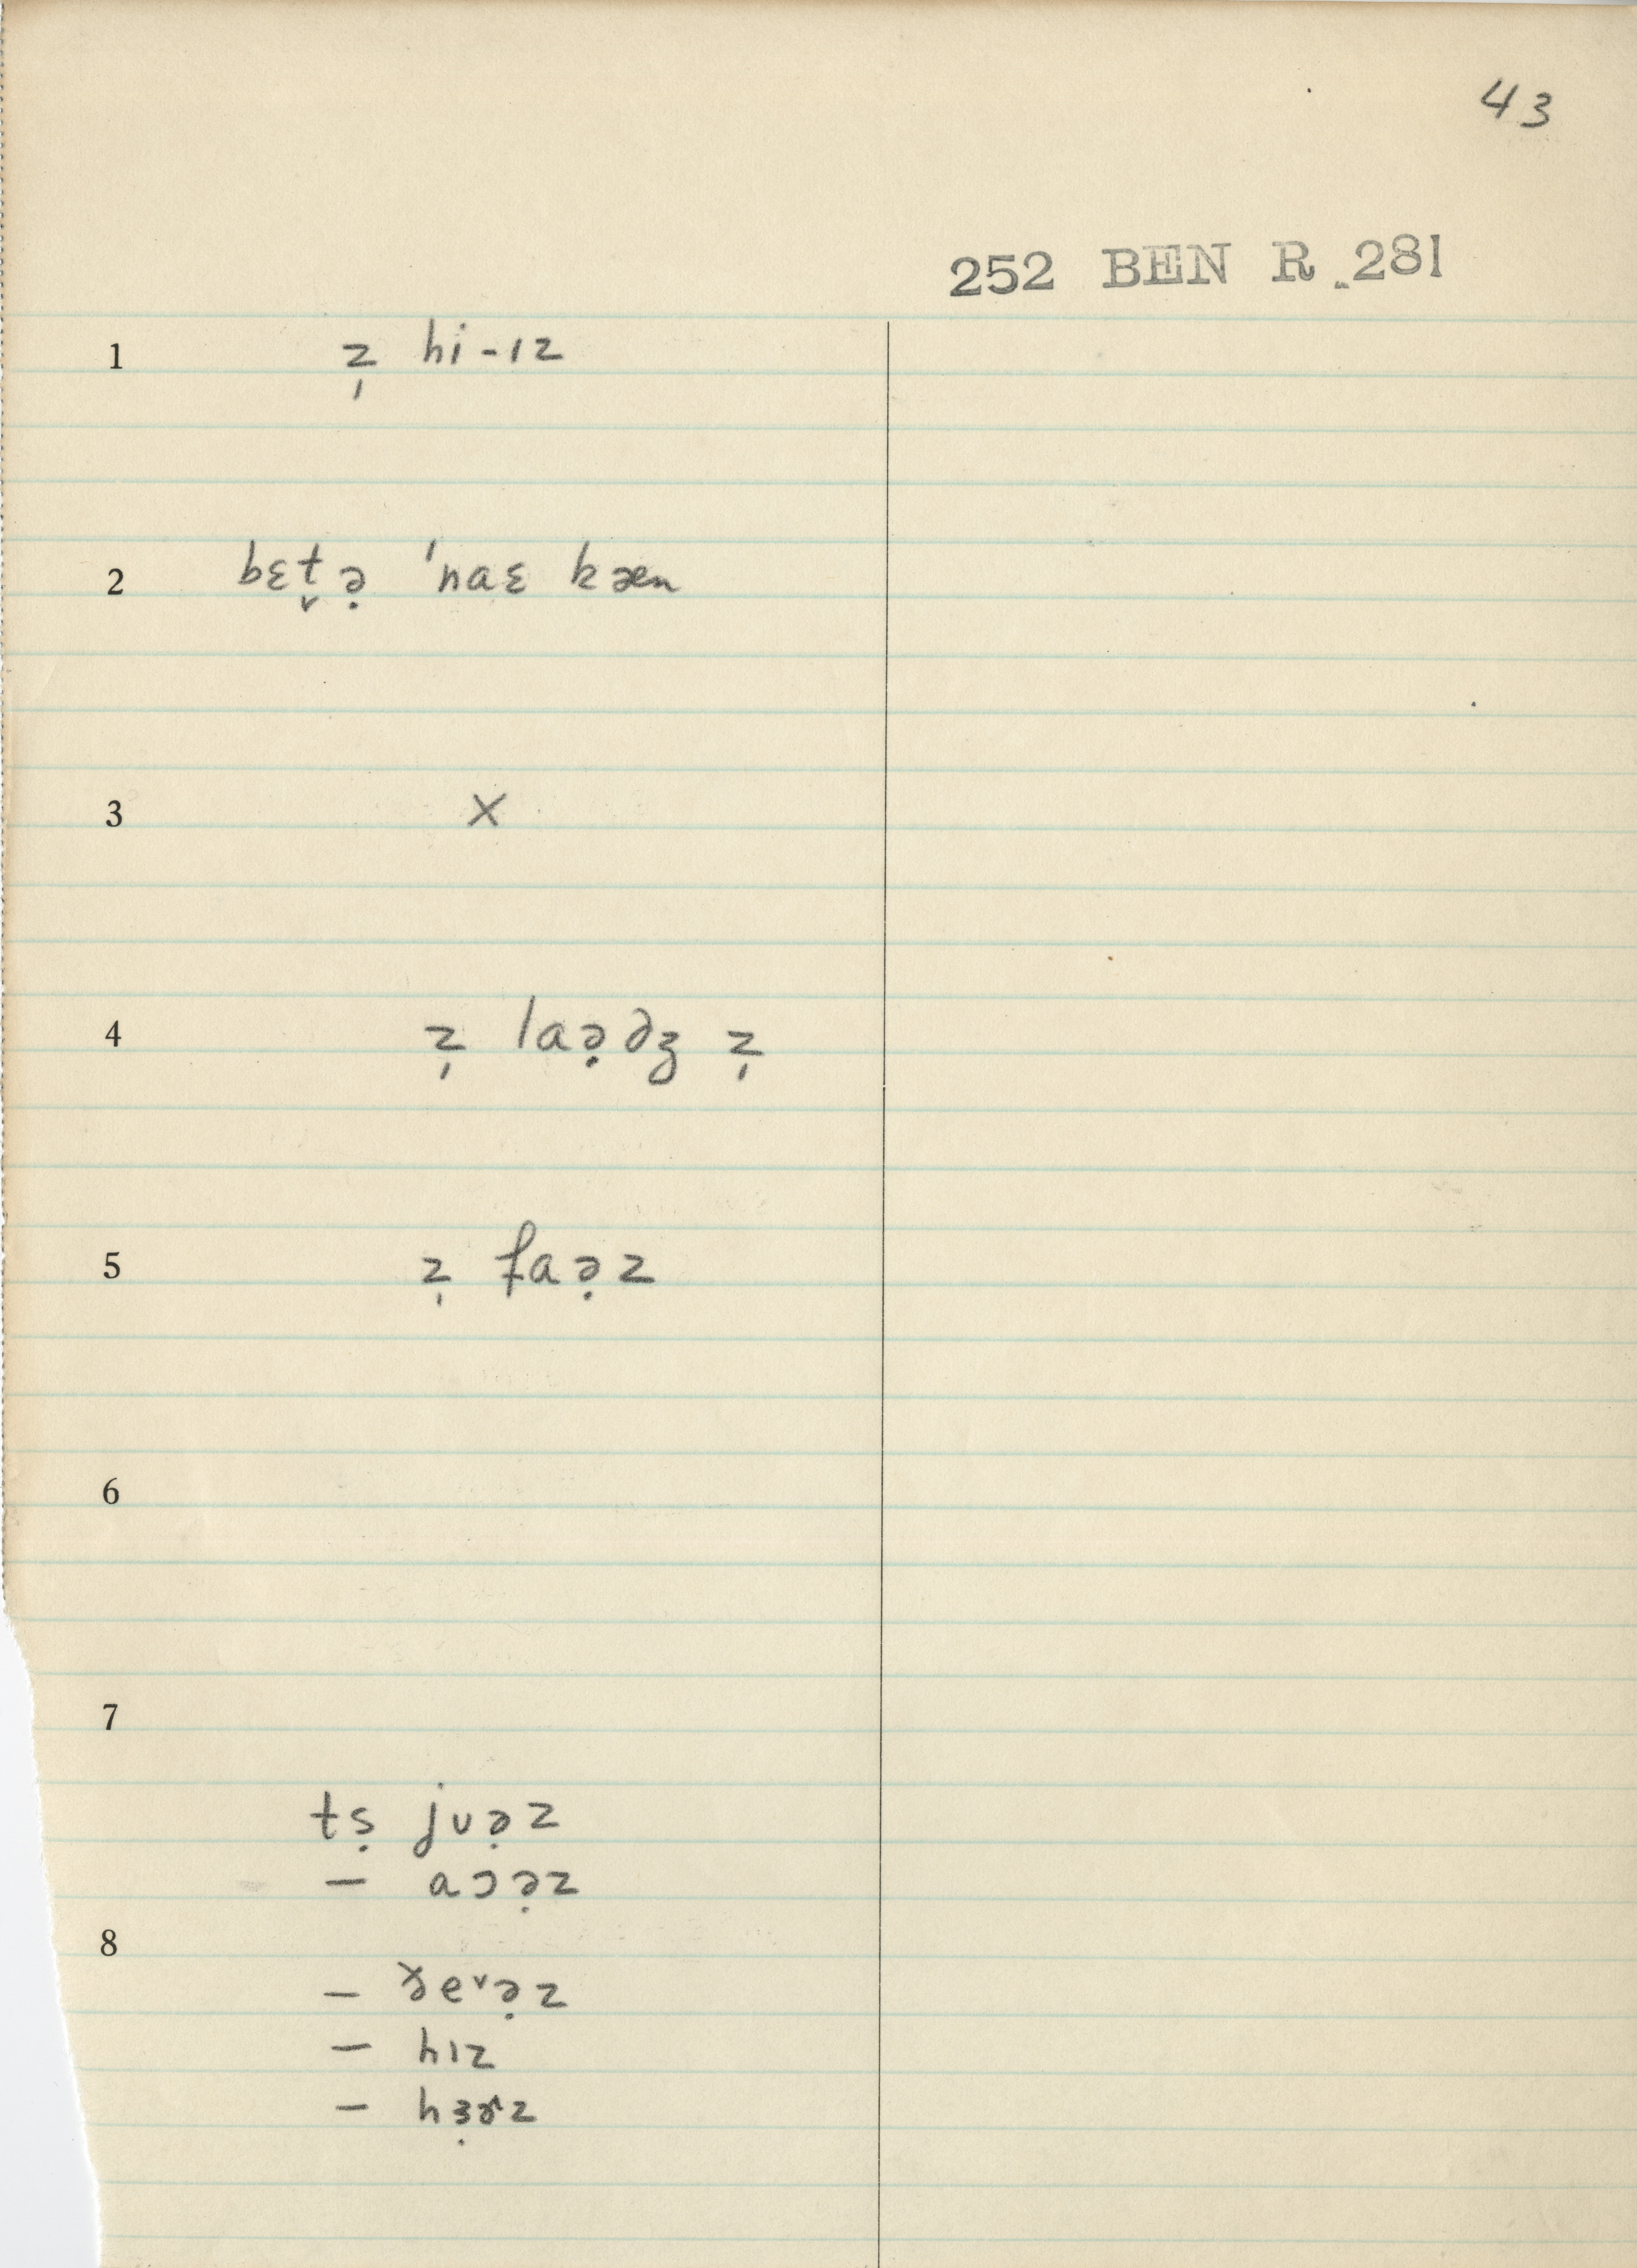 43
252 BEN R. 281
1 z̩ hi-ɪz
2 bɛt̬ə̣ 'naɛ kæn
3 X
4 z̩ laə̣ðʒ z̩
5 z̩ faə̣z
6
7
tṣ juə̣z
– aɔə̣z
8
– ðeᵛə̣z
– hɪz
– hɜ̣ɚz